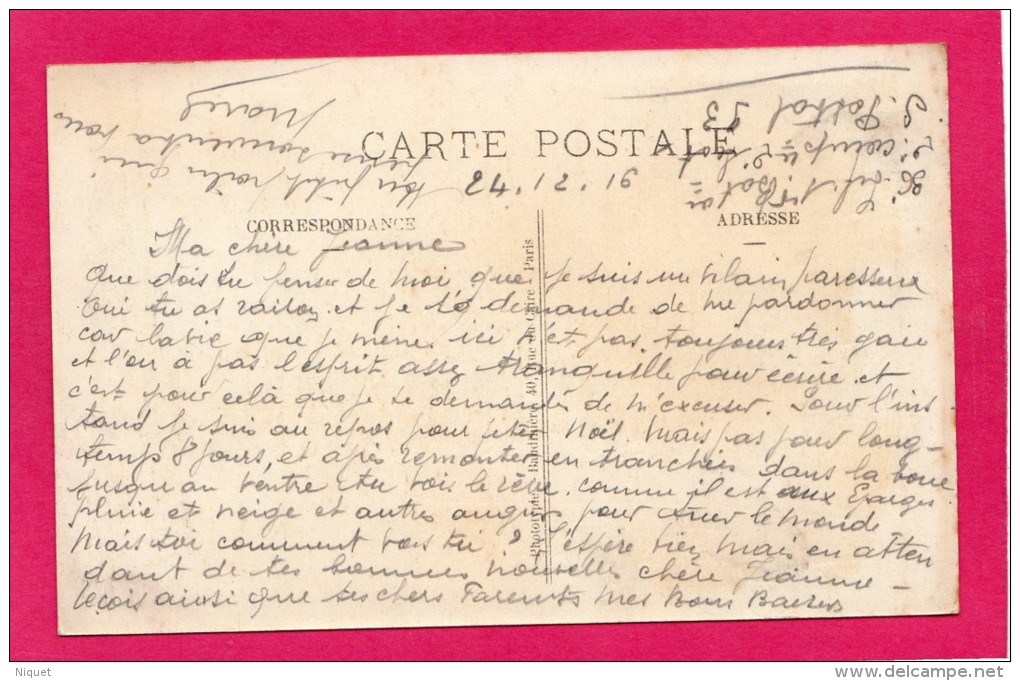 CARTE POSTALE
24.12.16
CORRESPONDANCE
ADRESSE
Ma chère Jeanne
Que dois tu penser de moi, que je suis un vilain paresseux
Oui tu as raison et je te demande de me pardonner
car la vie que je mène ici n'est pas toujours très gaie
et l'on a pas l'esprit assez tranquille pour écrire et
c'est pour celà que je te demandes de m'excuser. Pour l'ins-
tand je suis au repos pour fêter Noël. Mais pas pour long-
temps 8 jours, et après remonter en tranchées dans la boue
jusqu'au ventre tu vois le rêve. comme il est aux Eparges
pluie et neige et autres pour tuer le monde
Mais toi comment vas tu ? J'espère bien mais en atten
dant de tes bonnes nouvelles chère Jeanne -
reçois ainsi que tes chers Parents mes bons Baisers
Ton petit poilu qui
pense souvent à vous
Marcel
S. Postal 53
Phototypie Baudinière, 40, Rue du Caire Paris
Niquet
delcampe.net